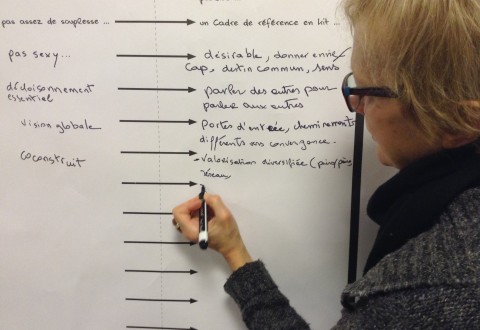 pas assez de souplesse ... un cadre de référence en kit ...
pas sexy... désirable, donner envie
cap, destin commun, sens
décloisonnement parler des autres pour
essentiel parler aux autres
vision globale Portes d'entrée, cheminements
différents vers convergence.
coconstruit - valorisation diversifiée
réseaux